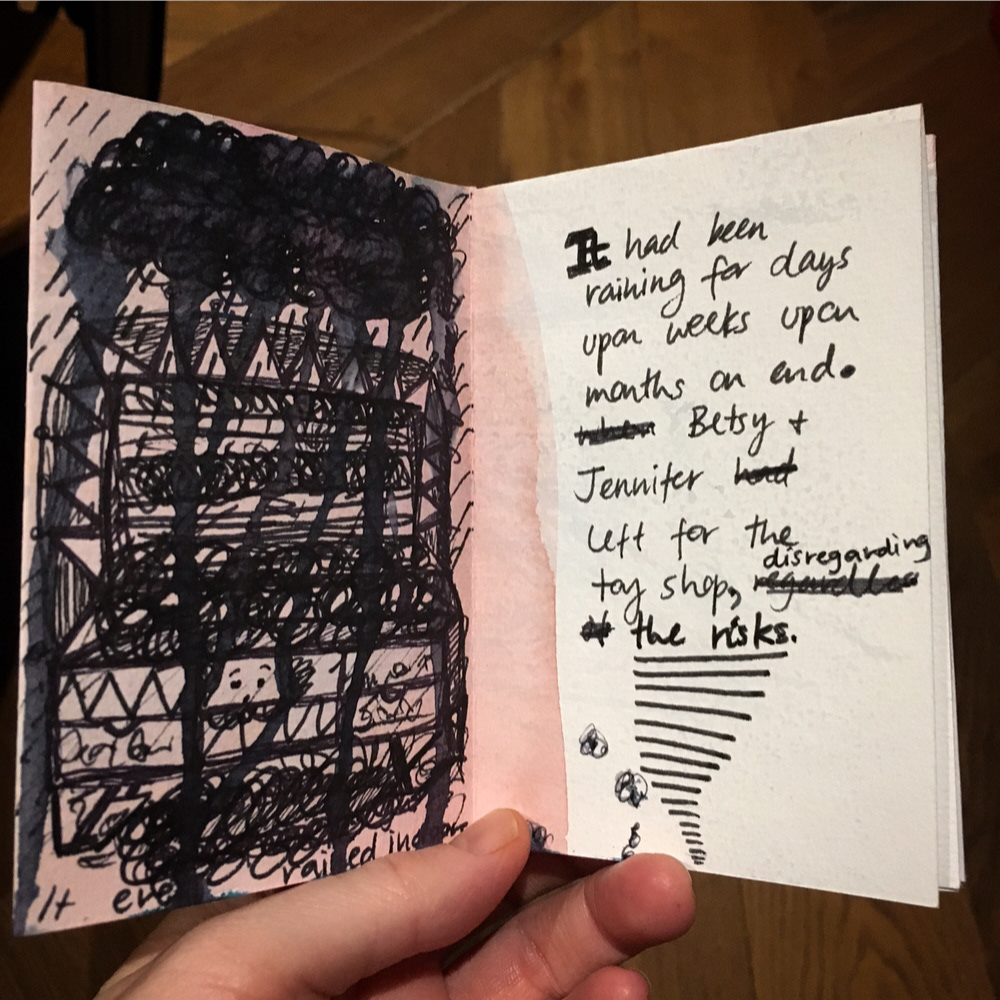 It eve rained in
It had been
raining for days
upon weeks upon
months on end.
when Betsy +
Jennifer had
left for the
disregarding
toy shop, regardless
the risks.